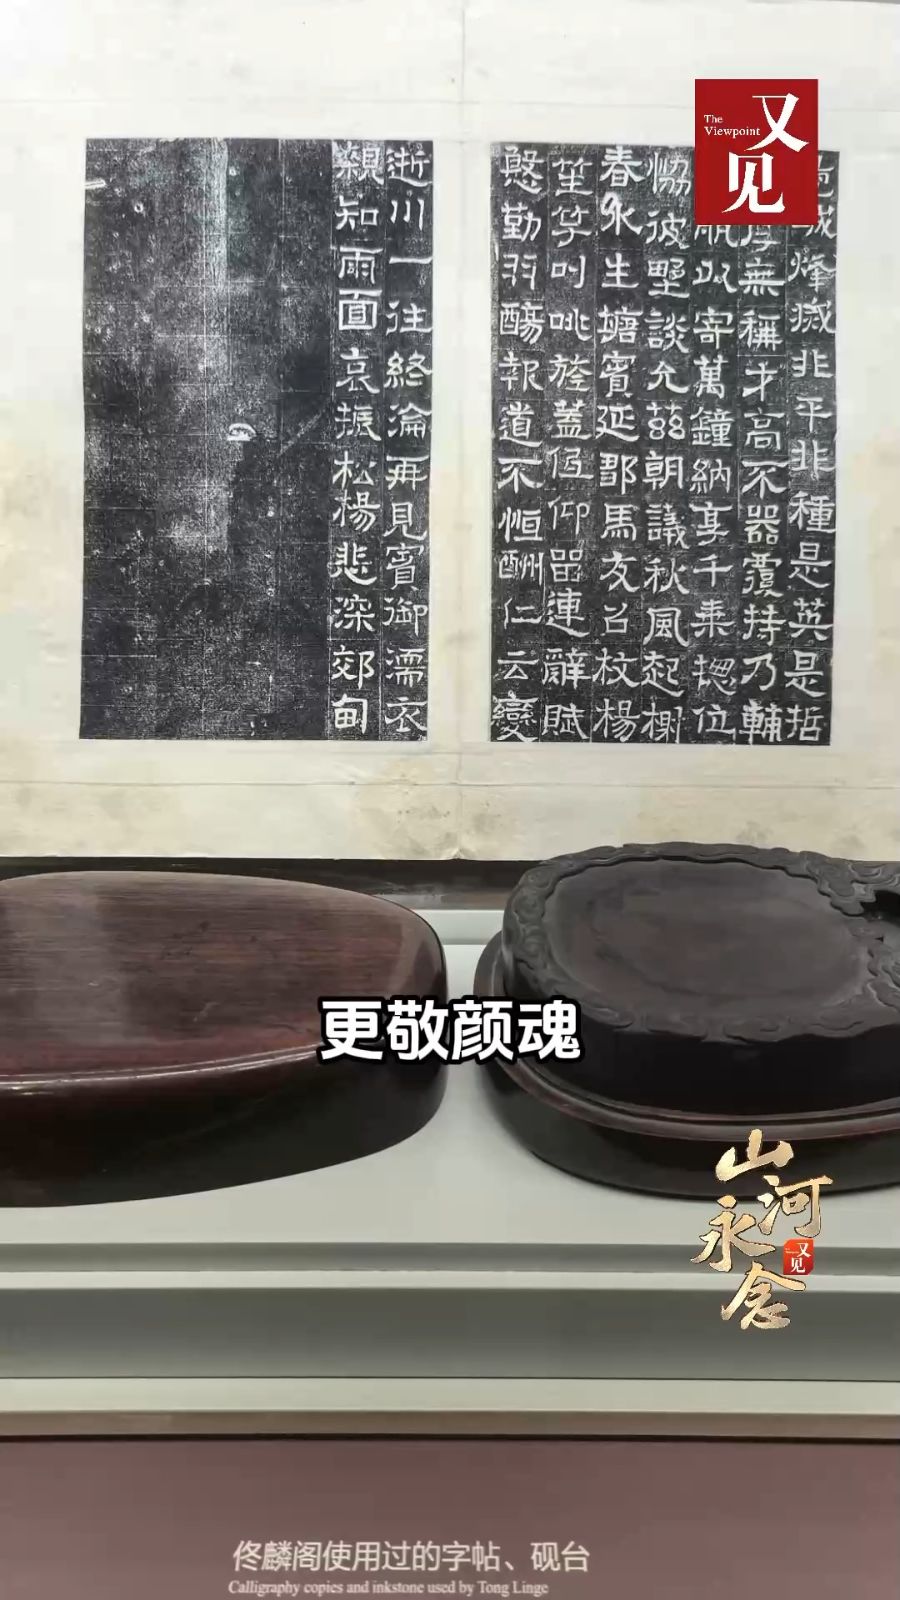 The
Viewpoint
又见
烽瘢非平非種是英是哲
無稱才高不器覆持乃輔
以寄萬鐘納享千乘揔位
恊彼野談允茲朝議秋風起榭
春水生塘賓延鄒馬友召枚楊
笙竽叫咷旌蓋伍仰留連辭賦
慇勤羽觴報道不恒酬仁云變
逝川一往終淪再見賓御濡衣
親知雨面哀振松楊悲深郊甸
更敬颜魂
山河永念
又见
佟麟阁使用过的字帖、砚台
Calligraphy copies and inkstone used by Tong Linge